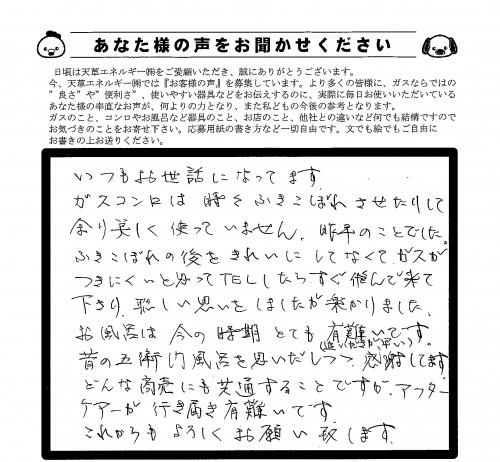 あなた様の声をお聞かせください
日頃は天草エネルギー㈱をご愛顧いただき、誠にありがとうございます。
今、天草エネルギー㈱では『お客様の声』を募集しています。より多くの皆様に、ガスならではの
”良さ”や”便利さ”、使いやすい器具などをお伝えするのに、実際に毎日お使いいただいている
あなた様の率直なお声が、何よりの力となり、また私どもの今後の参考となります。
ガスのこと、コンロやお風呂など器具のこと、お店のこと、他社との違いなど何でも結構ですので
お気づきのことをお寄せ下さい。応募用紙の書き方など一切自由です。文でも絵でもご自由に
お書きの上お送りください。
いつもお世話になってます。
ガスコンロは 時々ふきこぼれさせたりして
余り美しく使っていません。昨年のことでした。
ふきこぼれの後をきれいにしてなくて、ガスが
つきにくいと思ってTELしたらすぐ飛んで来て
下さり、恥しい思いをしましたが助かりました。
お風呂は 今の時期 とても有難いです。
昔の五衛門風呂を思いだしつつ、感謝してます
どんな商売にも共通することですが、アフター
ケアーが行き届き有難いです。
これからも よろしくお願い致します。